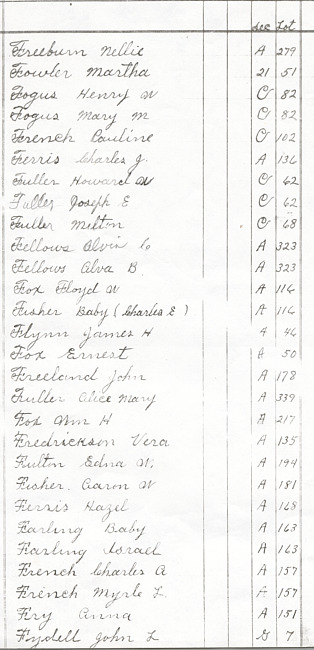 Sec Lot
Freeburn Nellie A 279
Fowler Martha 21 51
Fogus Henry W C 82
Fogus Mary M C 82
French Pauline C 102
Ferris Charles J. A 136
Fuller Howard W C 62
Fuller Joseph E C 62
Fuller Milton C 68
Fellows Alvin A 323
Fellows Alva B. A 323
Fox Floyd W A 116
Fisher Baby (Charles E) A 116
Flynn James H 4 46
Fox Ernest A 50
Freeland John A 178
Fuller Alice Mary A 339
Fox Wm H A 217
Fredrickson Vera A 135
Fulton Edna W. A 194
Fisher. Aaron W A 181
Ferris Hazel A 168
Farling Baby A 163
Farling Israel A 163
French Charles A A 157
French Myrle L. A 157
Fry Anna A 151
Fydell John L 7